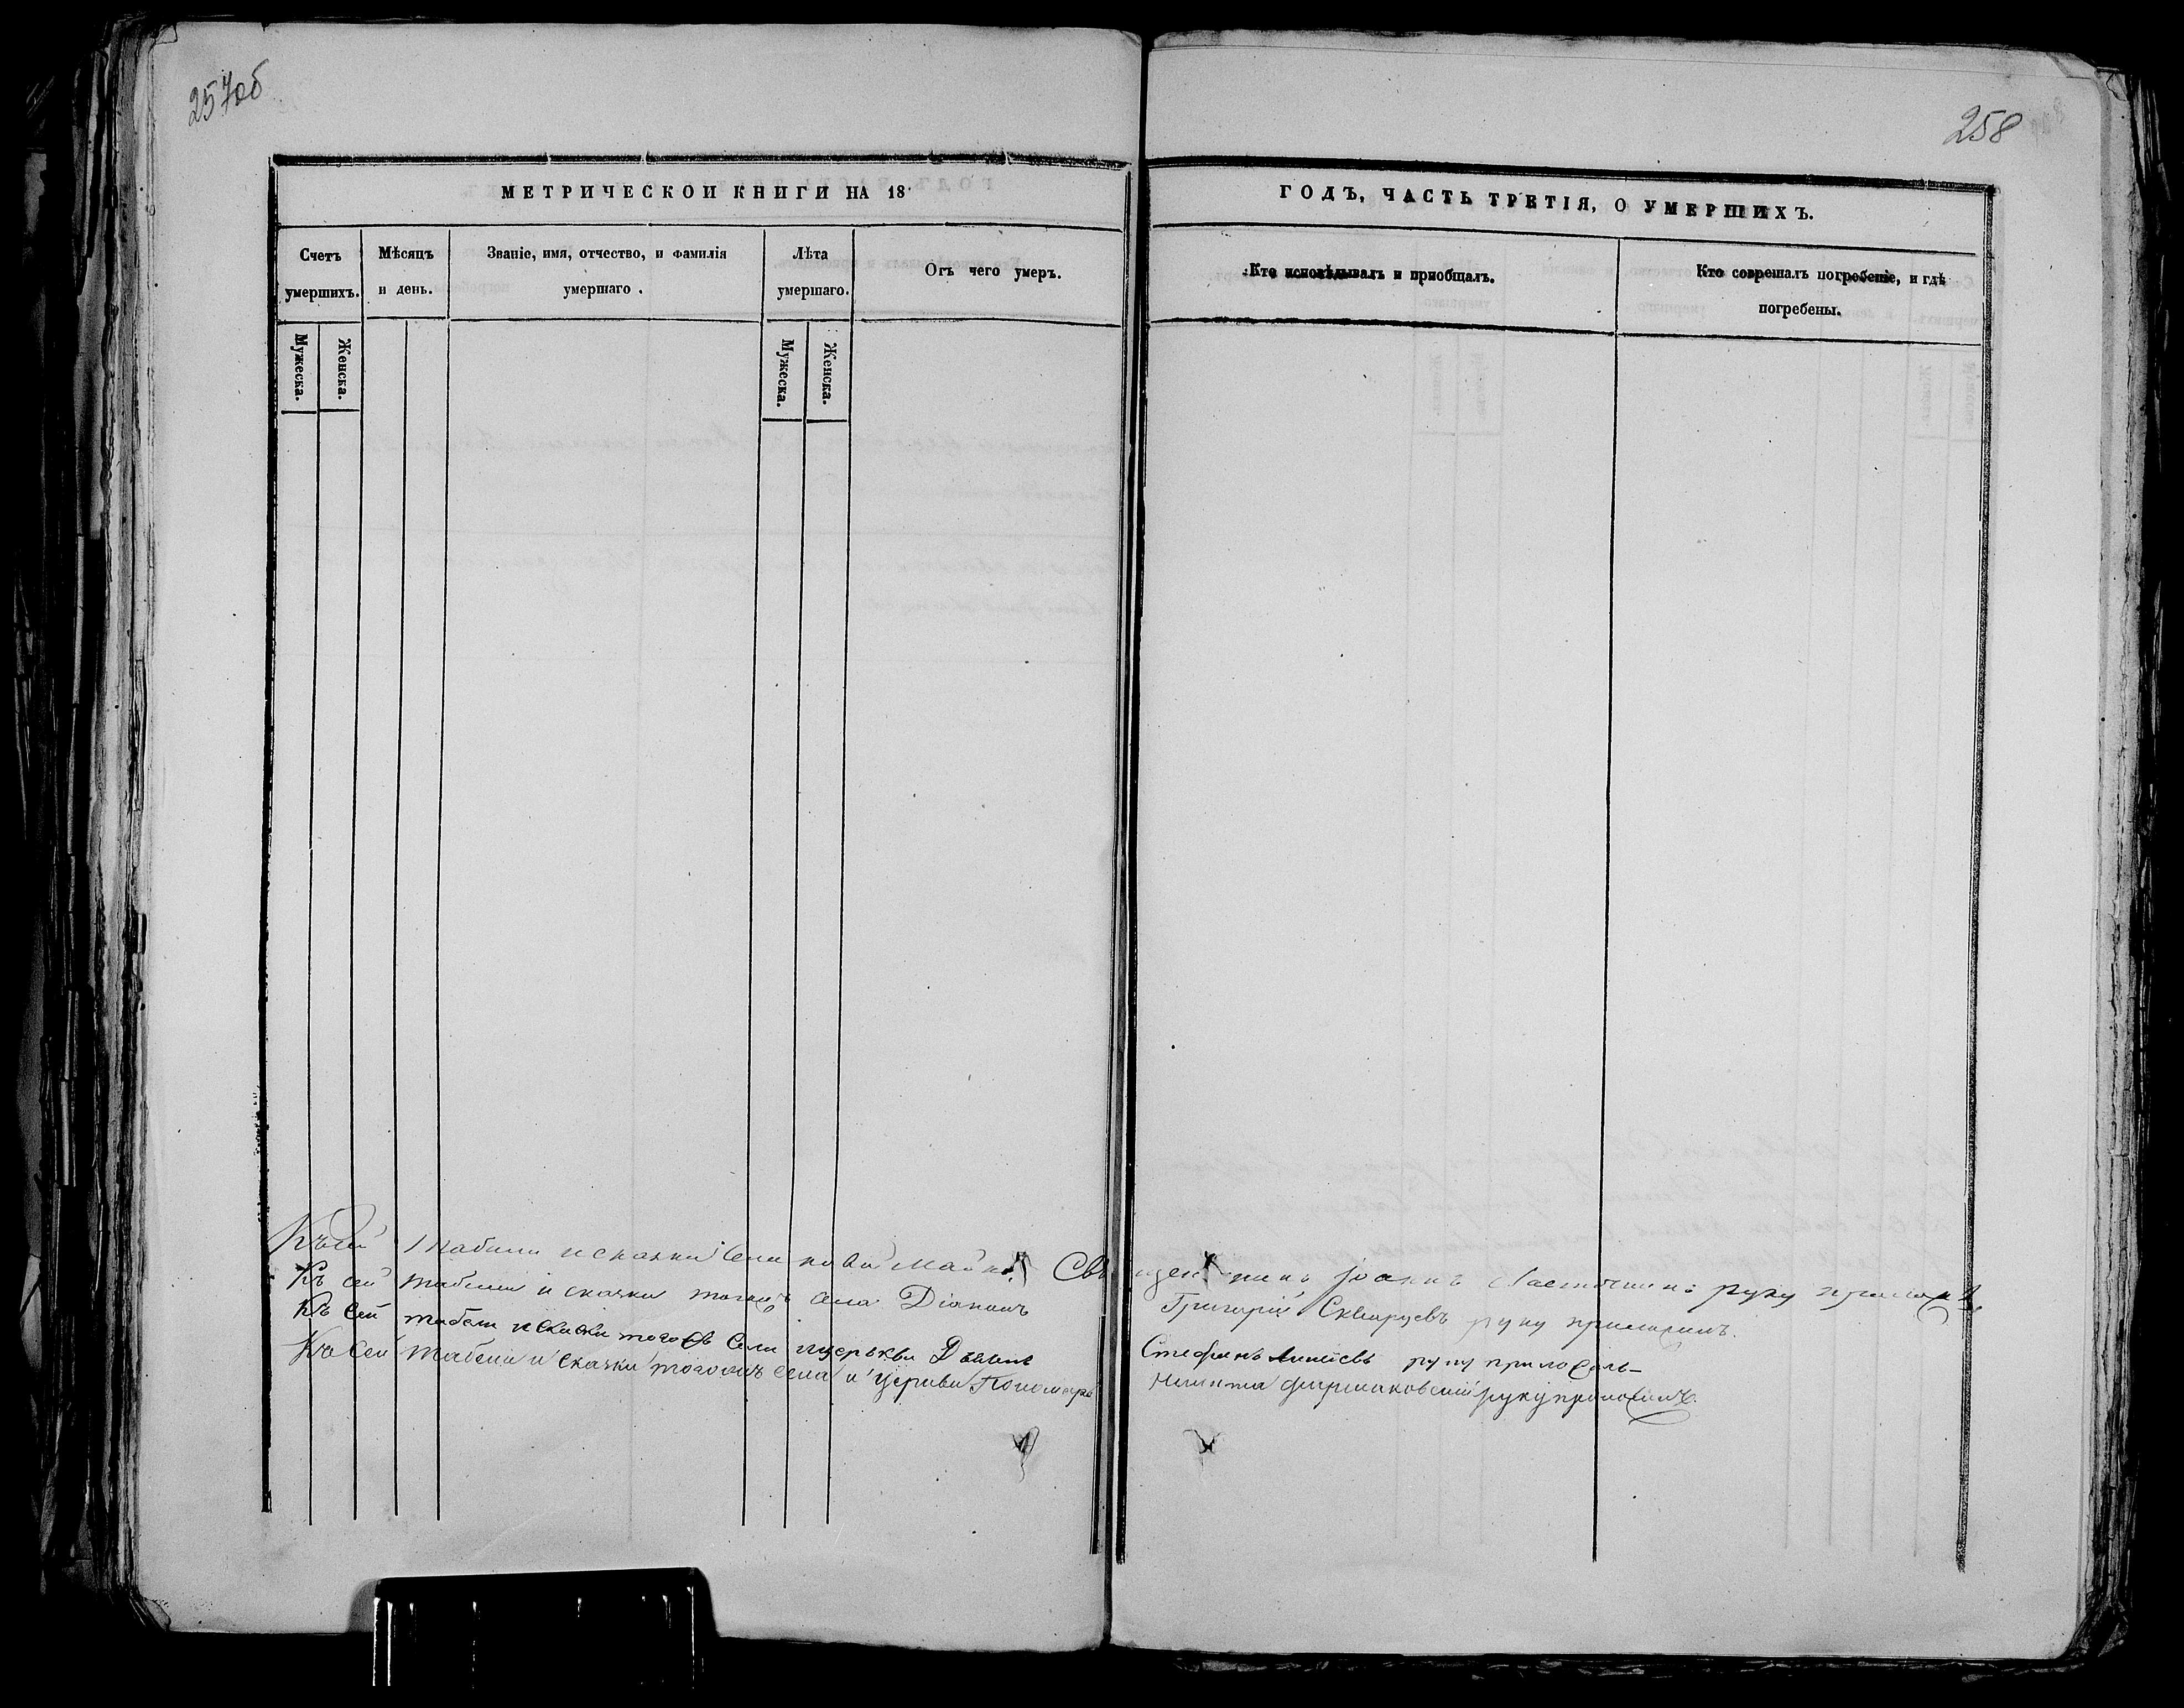 257об
258
МЕТРИЧЕСКОИ КНИГИ НА 18
ГОДЪ, ЧАСТЬ ТРЕТІЯ, О УМЕРШИХЪ.
Счетъ умершихъ.
Мѣсяцъ и день.
Званіе, имя, отчество, и фамилія умершаго.
Лѣта умершаго.
Отъ чего умеръ.
Кто исповѣдывалъ и приобщалъ.
Кто соврешалъ погребеніе, и гдѣ погребены.
Мужеска.
Женска.
Мужеска.
Женска.
Къ сей табели и сказки села новой Майны Священникъ Іоаннъ Ласточкинъ руку приложилъ
Къ сей табели и сказки тогожъ села Діаконъ Григорій руку приложилъ.
Къ сей табели и сказки тогожъ села и церькви Стефанъ руку приложилъ
Къ сей табели и сказки тогожъ села и церкви Пономарь руку приложилъ.